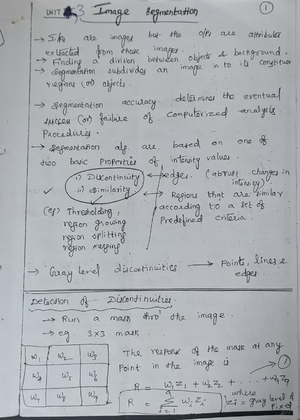 UNIT 3 Image Segmentation
1
→ I/ps are images but the o/ps are attributes
extracted from those images.
→ Finding a division between objects & background.
→ Segmentation subdivides an image in to its constituent
regions (or) objects.
→ Segmentation accuracy determines the eventual
success (or) failure of computerized analysis
Procedures.
→ Segmentation alg. are based on one of
two basic Properties of intensity values.
i) Discontinuity → edges. (abrupt changes in
intensity)
✓ ii) Similarity → Regions that are similar
according to a set of
Predefined criteria.
(eg) Thresholding,
region growing
region splitting
region merging
→ Gray level discontinuities → Points, lines &
edges.
Detection of Discontinuities
→ Run a mask thro' the image.
→ eg 3x3 mask
w₁ w₂ w₃
w₄ w₅ w₆
w₇ w₈ w₉
The response of the mask at any
Point in the image is
R = w₁z₁ + w₂z₂ + ... + w₉z₉
R = Σ wᵢ zᵢ i=1 9
where
zᵢ = gray level of
pixel